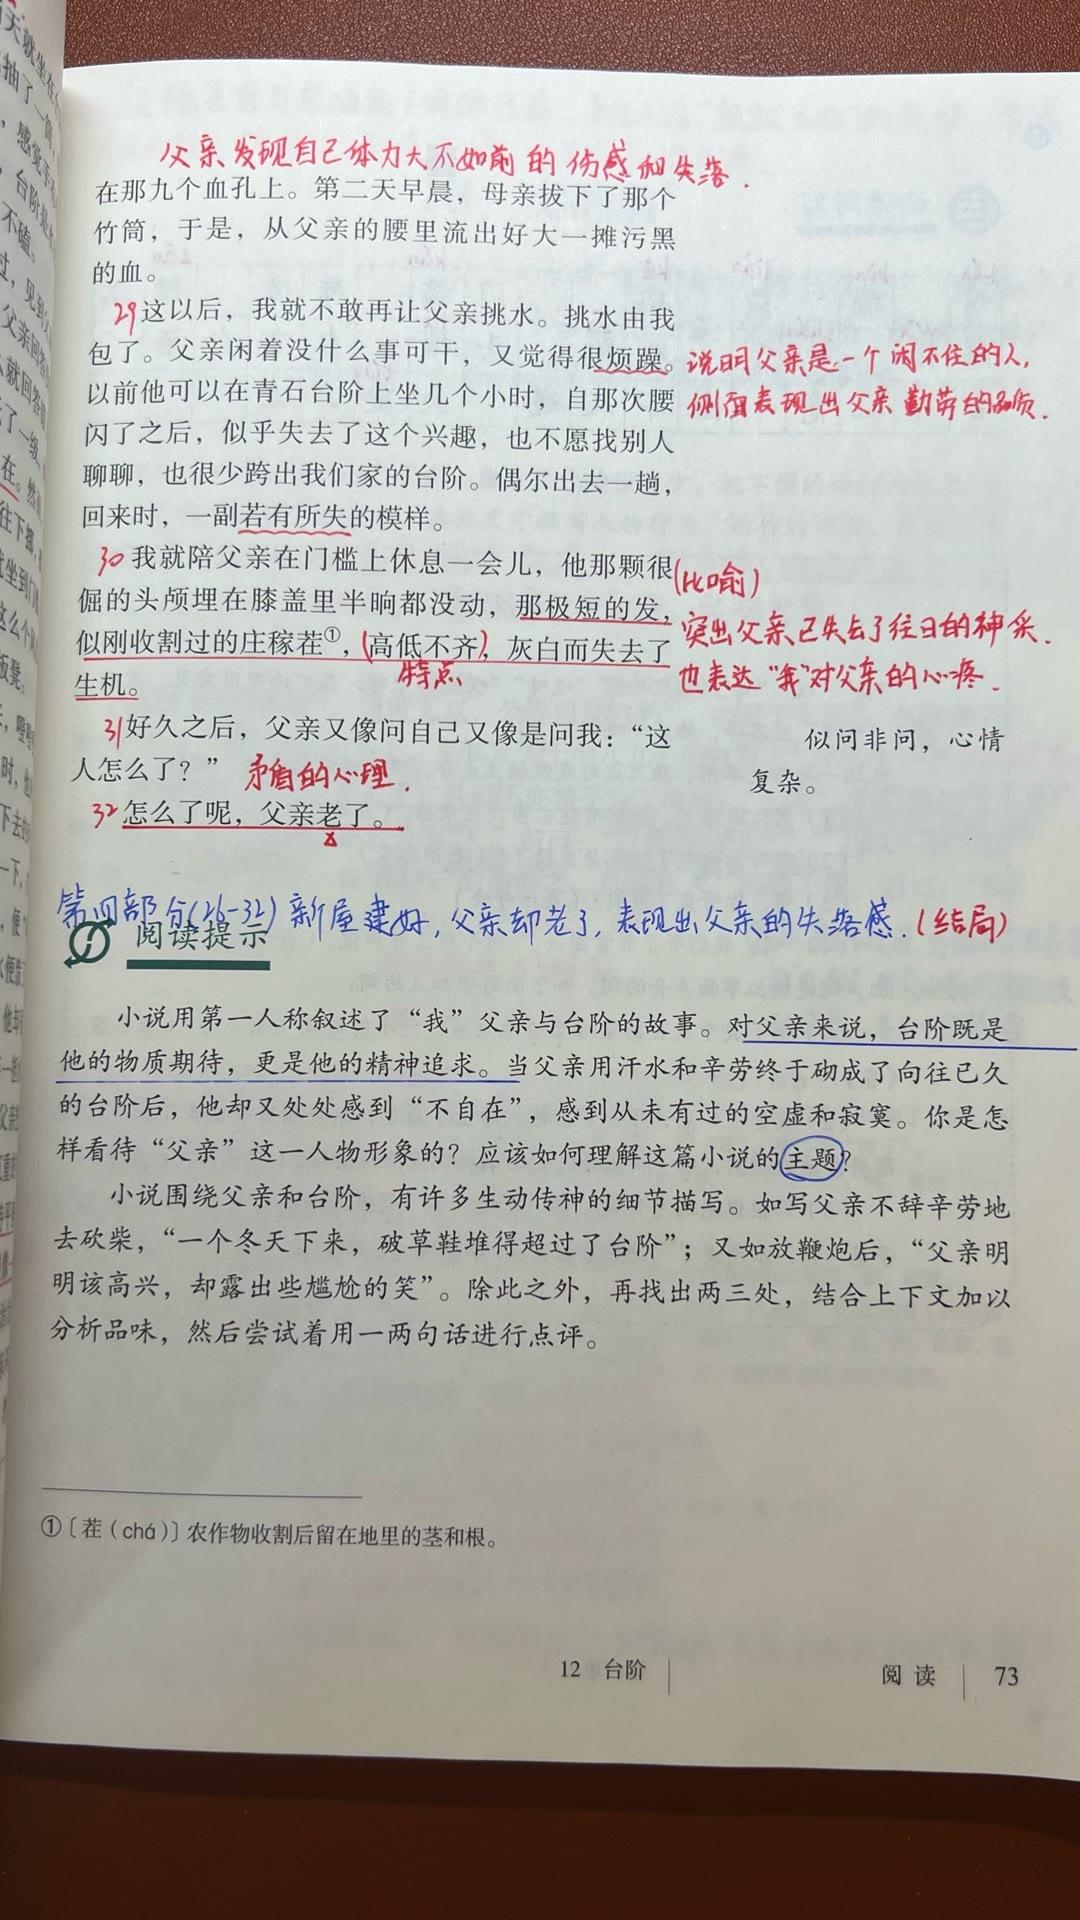 父亲发现自己体力大不如前的伤感和失落.
在那九个血孔上。第二天早晨，母亲拔下了那个
竹筒，于是，从父亲的腰里流出好大一摊污黑
的血。
29这以后，我就不敢再让父亲挑水。挑水由我
包了。父亲闲着没什么事可干，又觉得很烦躁。
说明父亲是一个闲不住的人,
以前他可以在青石台阶上坐几个小时，自那次腰
侧面表现出父亲勤劳的品质.
闪了之后，似乎失去了这个兴趣，也不愿找别人
聊聊，也很少跨出我们家的台阶。偶尔出去一趟，
回来时，一副若有所失的模样。
30我就陪父亲在门槛上休息一会儿，他那颗很
(比喻)
倔的头颅埋在膝盖里半晌都没动，那极短的发，
突出父亲已失去了往日的神采.
似刚收割过的庄稼茬①，(高低不齐)，灰白而失去了
特点
也表达“我”对父亲的心疼.
生机。
31好久之后，父亲又像问自己又像是问我：“这
似问非问，心情
人怎么了？”
矛盾的心理.
复杂。
32怎么了呢，父亲老了。
第四部分(26-32)新屋建好,父亲却老了,表现出父亲的失落感.(结局)
阅读提示
小说用第一人称叙述了“我”父亲与台阶的故事。对父亲来说，台阶既是
他的物质期待，更是他的精神追求。当父亲用汗水和辛劳终于砌成了向往已久
的台阶后，他却又处处感到“不自在”，感到从未有过的空虚和寂寞。你是怎
样看待“父亲”这一人物形象的？应该如何理解这篇小说的主题？
小说围绕父亲和台阶，有许多生动传神的细节描写。如写父亲不辞辛劳地
去砍柴，“一个冬天下来，破草鞋堆得超过了台阶”；又如放鞭炮后，“父亲明
明该高兴，却露出些尴尬的笑”。除此之外，再找出两三处，结合上下文加以
分析品味，然后尝试着用一两句话进行点评。
①〔茬（chá）〕农作物收割后留在地里的茎和根。
12 台阶
阅读 73